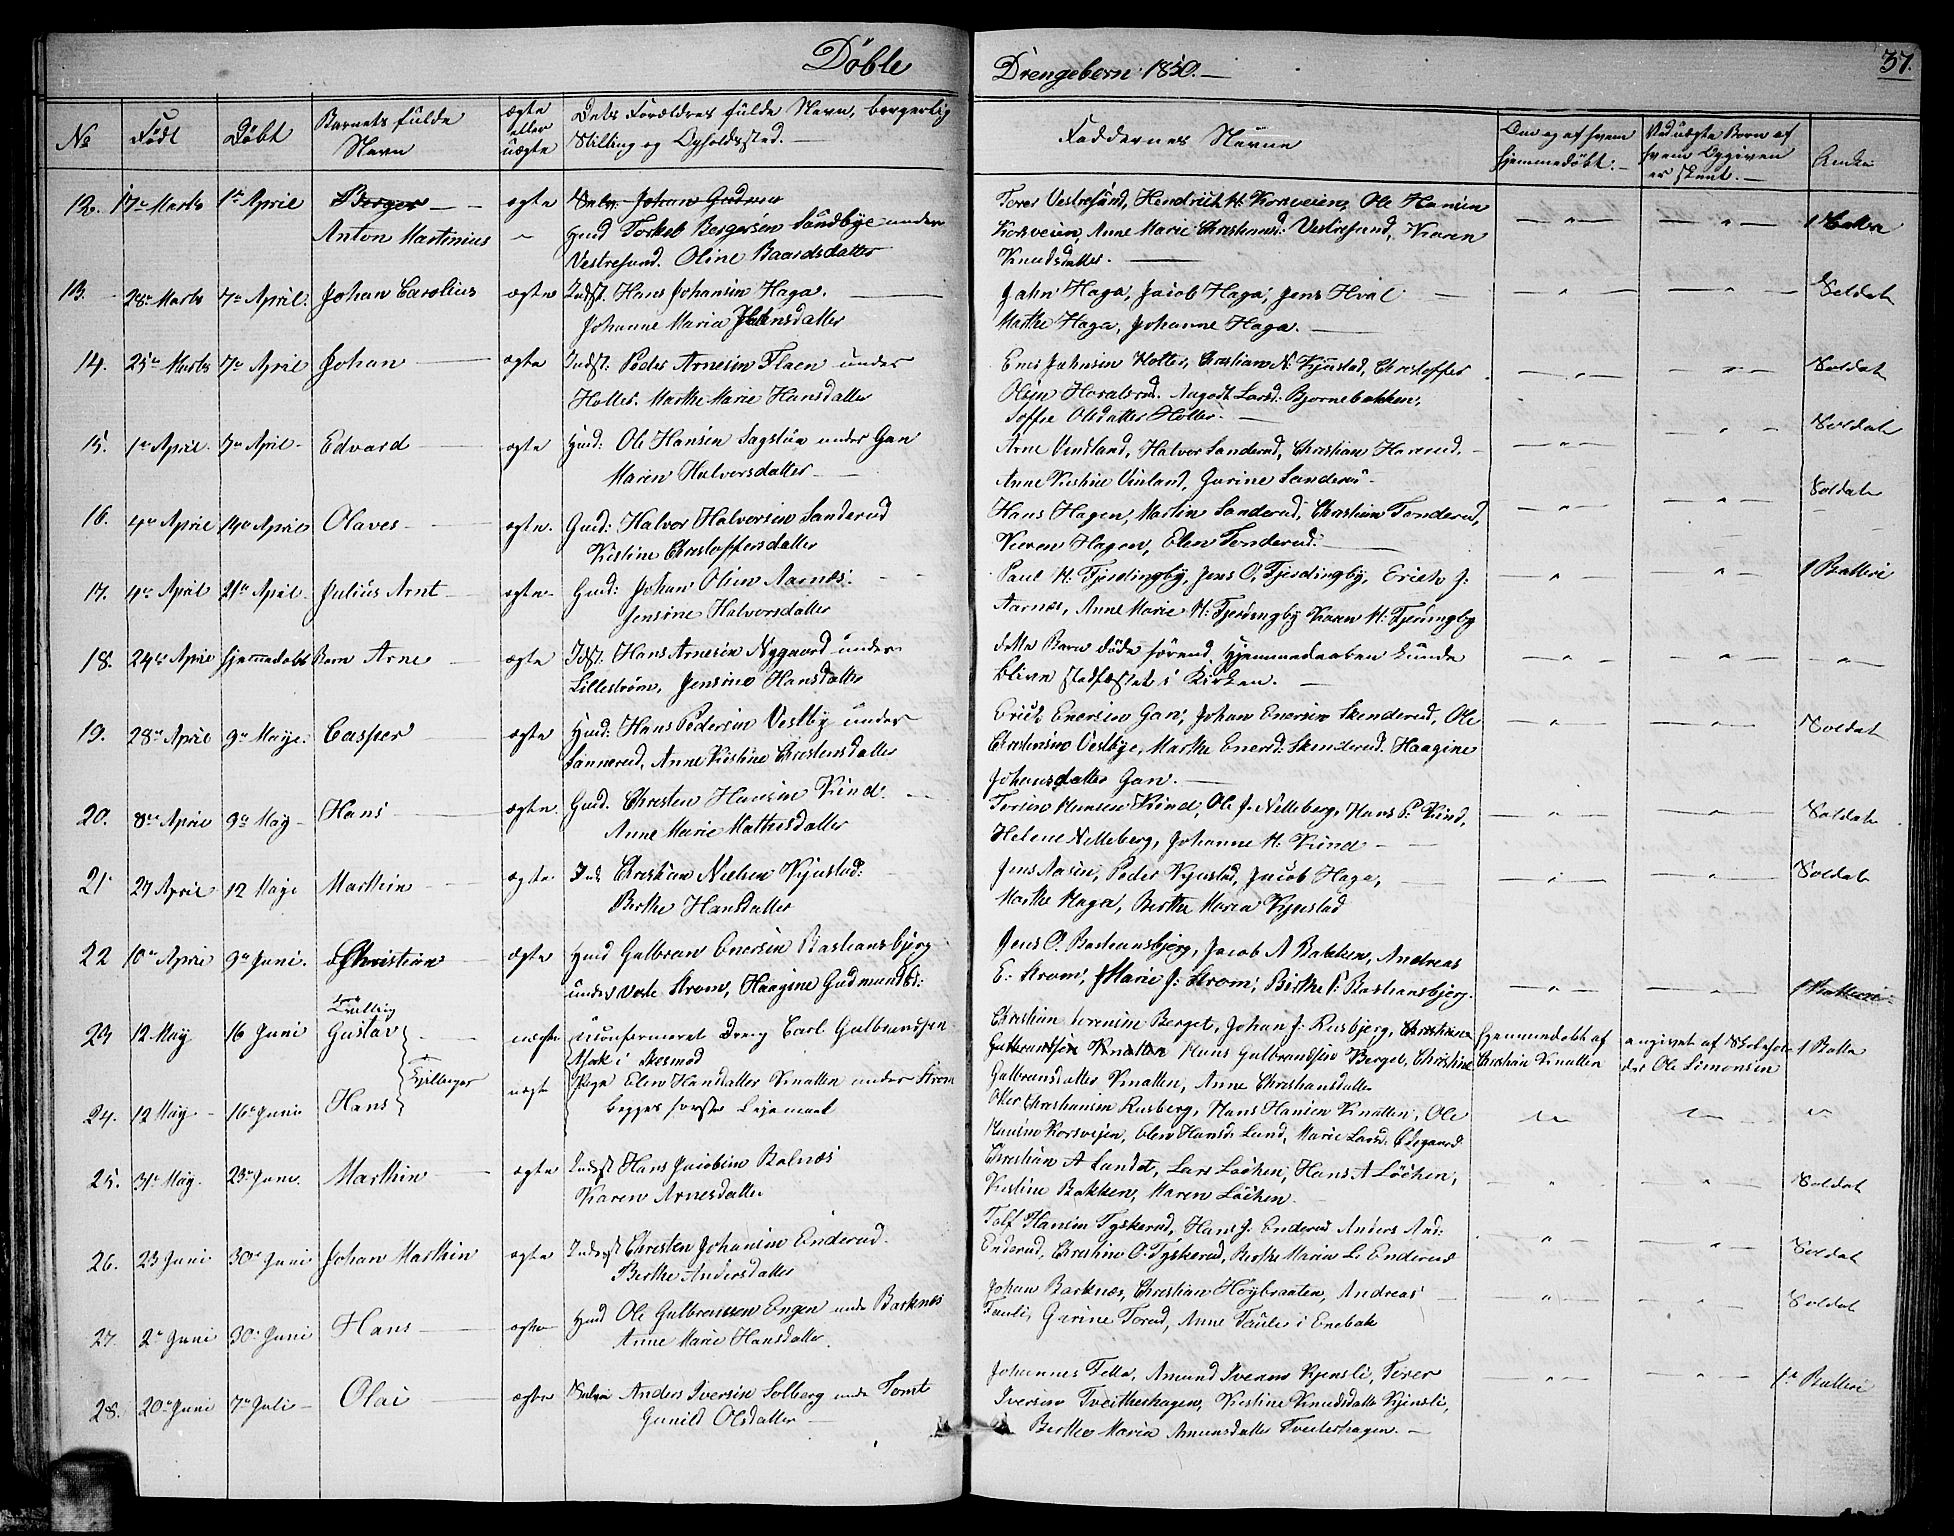 Döbte Drengebørn 1850.—
37.
No Født Døbt Barnets fulde Navn ægte eller uægte Dets Forældres fulde Navn, borgerlig Stilling og Opholdssted.— Faddernes Navne Om og af hvem hjemmedøbt.— Ved uægte Børn af hvem Opgiven er skeet.—
12. 17de Marts 1ste April Berger — ægte
Anton Martinius — Huusmd Torkel Bergersen Sundbye under
Vestresund. Oline Baardsdatter
Torer Vestresund, Hendrich H: Korsveien, Ole Hansen
Korsveien, Anne Marie Christensd: Vestresund, Karen
Knudsdatter. — 1 Batteri
13. 28de Marts 7de April Johan Carolius ægte Indst. Hans Johansen Haga.
Johanne Maria Hansdatter
Jahn Haga, Jacob Haga, Jens Hval
Marthe Haga, Johanne Haga. — Soldat
14. 25de Marts 7de April Johan ægte Indst: Peder Arnesen Flaen under
Holter. Marthe Marie Hansdatter
Ener Jahnsen Holter, Christian N: Kjustad, Christoffer
Olsen Haralsrud. Lars: Bjørnebakken,
Soffie Olsdatter Holter. — Soldat
15. 1ste April. 7de April Edvard ægte Huusmd: Ole Hansen Sagstua under Gan
Maren Halvorsdatter —
Arne Vindland, Halvor Sanderud, Christian Harerud,
Anne Kirstine Vinland, Gurine Sanderud. Soldat
16. 4de April 14de April Olaves ægte. Gmd: Halvor Halvorsen Sanderud
Kistine Christoffersdatter
Hans Hagen, Martin Sanderud, Christian Tonderud,
Karen Hagen, Elen Tonderud. Soldat
17. 4de April 21de April. Julius Arnt ægte Gmd: Johan Olsen Aarnæs.
Jensine Halvorsdatter
Paul H: Fjerdingby, Jens O. Fjerdingby, Erich J.
Aarnæs, Anne Marie H: Fjerdingby Karen H: Fjerdingby 1 Batteri
18. 24de April Hjemmedøbt Barn Arne ægte Indst. Hans Arnesen Nygaard under
Lillestrøm, Jensine Hansdatter
dette Barn døde førend Hjemmedaaben kunde
bliven stadfæstet i Kirken. —
19. 28de April 9de Maye. Casper ægte Huusmd: Hans Pedersen Vestby under
Sannerud, Anne Kirstine Christensdatter
Erich Enersen Gan, Johan Enersen Skenderud, Ole
Christensen Vestbye, Marthe Enersd: Skenderud. Haagine
Johansdatter Gan. — Soldat
20. 8de April 9de May Hans ægte. Gmd. Christen Hansen Kind.
Anne Marie Mathisdatter
Torsten Hansen Kind, Ole J. Nilleberg, Hans P. Kind,
Helene Nilleberg, Johanne H. Kind — Soldat
21 27 April 12 Maye Marthin ægte Inds Christian Nielsen Kjustad:
Berthe Hansdatter
Jens Aasen, Peder Kjustad, Jacob Haga,
Marthe Haga, Berthe Maria Kjustad Soldat
22 10de April 9de Juni. Christian ægte Huusmd Gulbran Enersen Bastiansbjerg
under Vestre Strøm, Haagine Gudmundsd:
Jens O. Bastiansbjerg, Jacob A Bakken, Andreas
E. Strøm, Marie J: Strøm, Birthe P: Bastiansbjerg.
23 12 May 16 Juni Gustav uægte uconfirmeret Dreng Carl Gulbrandsen
Asak i Skesmod
Christian Sørensen Berget, Johan J. Rusbjerg,
Hans Gulbrandsen Berget, Christine
Gulbrandsdatter Knatten, Anne Christiansdatter
Hjemmedøbt af Christian Knatten angivet af Ole Simonsen
Tvillinger
24. 12 May 16de Juni Hans uægt Pige Elen Hansdatter Knatten under Strøm
begges første Lejemaal
Christiansen Rusberg, Hans Hansen Knatten, Ole
Hansen Korsvejen, Elen Hansd: Lund, Marie Larsd. Ødegaard
25. 31te May. 23de Juni. Marthin ægte Indst Hans Jacobsen Bolnæs
Karen Arnesdatter
Christian A Lundet, Lars Løchen, Hans A Løchen,
Kistine Bakken, Maren Løchen. Soldat
26. 23 Juni 30de Juni Johan Marthin ægte Indst Christen Johansen Enderud.
Berthe Andersdatter
Tolf Hansen Tyskerud, Hans J. Enderud Anders And:
Enderud, Christine O. Tyskerud, Berthe Maria L. Enderud Soldat
27. 2de Juni 30de Juni Hans ægte Huusmd Ole Gulbransen Engen under Barknæs
Anne Marie Hansdatter.
Johan Barknæs, Christian Høybraaten, Andreas
Tauli, Gurine Torud, Anne Taule i Enebak Soldat
28. 20de Juni 7de Juli Olai ægte Selve Anders Iversen Solberg under Tomt
Gunild Olsdatter —
Johannes Tella, Amund Iversen Kjensli, Torer
Iversen Tveiterhagen, Kistine Knudsdatter Kjensli,
Berthe Maria Amunsdatter Tveiterhagen. — 1ste Batteri